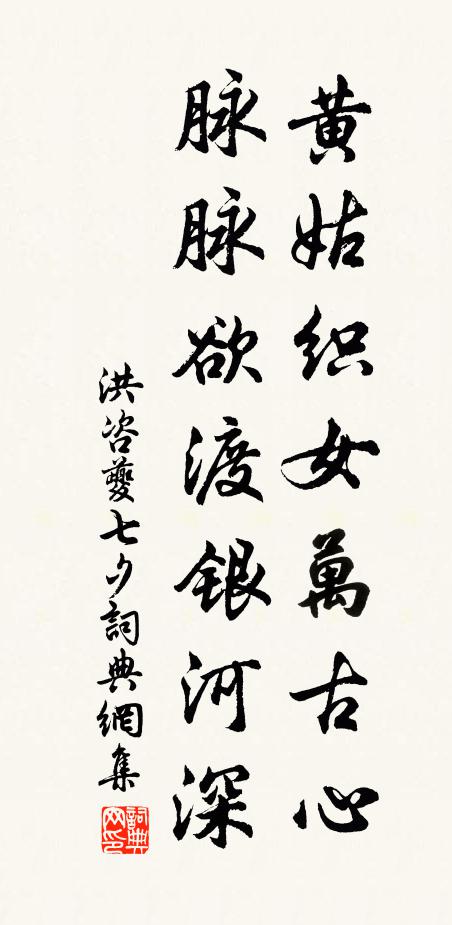 黄姑织女萬古心
脉脉欲渡银河深
洪咨夔七夕詞典網集
詞典
网印